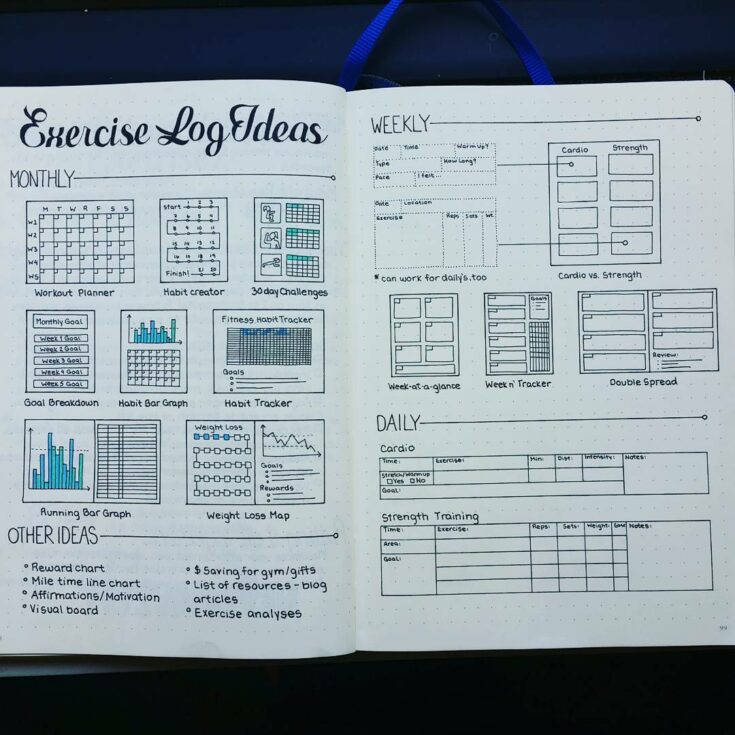 Exercise Log Ideas
MONTHLY
M T W T F S S
W1
W2
W3
W4
W5
Workout Planner
Start 1 2 3
7 6 5 4
8 9 10 11
15 14 13 12
16 17 18 19
Finish! 21 20
Habit creator
30 day Challenges
Monthly Goal
Week 1 Goal
Week 2 Goal
Week 3 Goal
Week 4 Goal
Week 5 Goal
Goal Breakdown
Habit Bar Graph
Fitness Habit Tracker
Goals
Habit Tracker
Running Bar Graph
Weight Loss
Goals
Rewards
Weight Loss Map
OTHER IDEAS
° Reward chart
° Mile time line chart
° Affirmations/Motivation
° Visual board
° $ Saving for gym/gifts
° List of resources - blog
articles
° Exercise analyses
WEEKLY
Date Time Warm up?
Type How Long?
Pace I felt
Date Location
Exercise Reps Sets Wt.
* can work for daily's, too
Cardio Strength
Cardio vs. Strength
Week-at-a-glance
Goals
Week n' Tracker
Review:
Double Spread
DAILY
Cardio
Time: Exercise: Min: Dist: Intensity: Notes:
Stretch/Warm up
Yes No
Goal:
Strength Training
Time: Exercise: Reps: Sets: Weight: Goal Notes:
Area:
Goal:
99